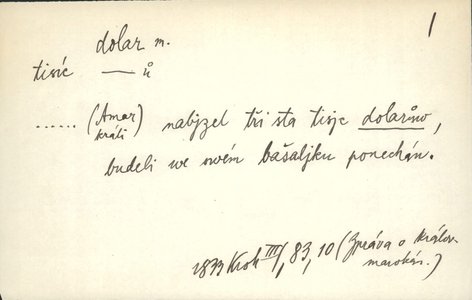 1
dolar m.
tisíc —— ů
...... (Amar králi) nabjzel tři sta tisjc dolarůw,
budeli we swém bašaljku ponechán.
1833 Krok III/1, 83, 10 (Zpráva o králow. marokán.)